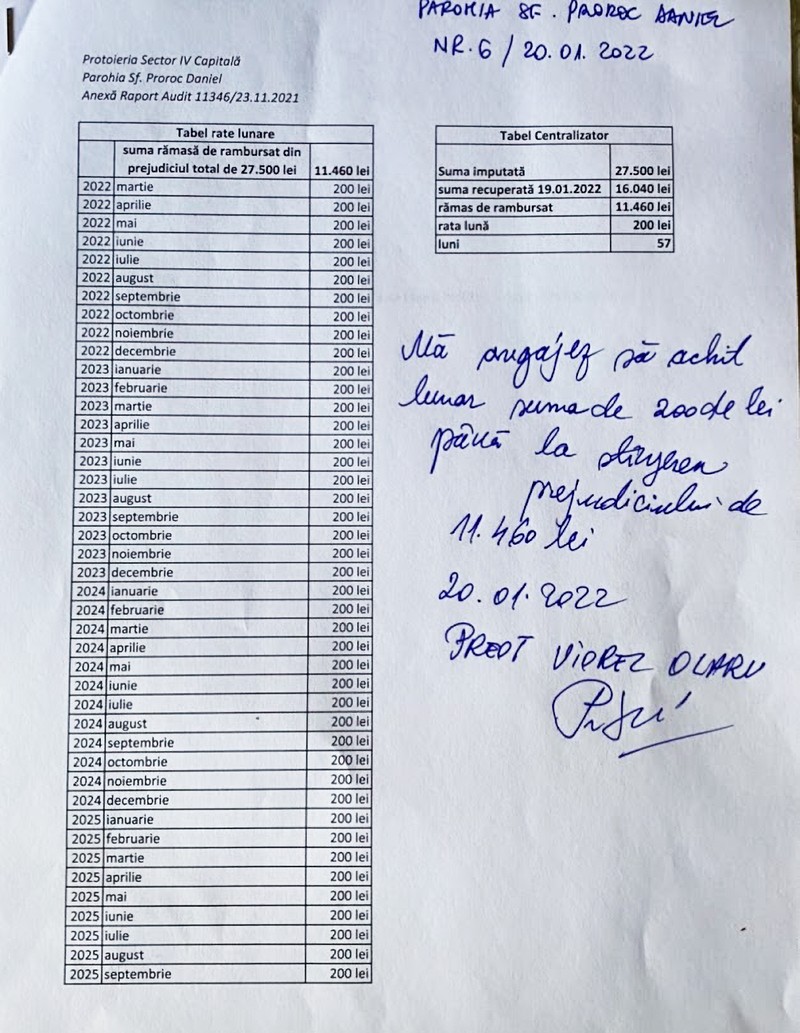 PAROHIA SF. PROROC DANIEL
NR. 6 / 20.01. 2022
Protoieria Sector IV Capitală
Parohia Sf. Proroc Daniel
Anexă Raport Audit 11346/23.11.2021
Tabel rate lunare
suma rămasă de rambursat din
prejudiciul total de 27.500 lei 11.460 lei
2022 martie 200 lei
2022 aprilie 200 lei
2022 mai 200 lei
2022 iunie 200 lei
2022 iulie 200 lei
2022 august 200 lei
2022 septembrie 200 lei
2022 octombrie 200 lei
2022 noiembrie 200 lei
2022 decembrie 200 lei
2023 ianuarie 200 lei
2023 februarie 200 lei
2023 martie 200 lei
2023 aprilie 200 lei
2023 mai 200 lei
2023 iunie 200 lei
2023 iulie 200 lei
2023 august 200 lei
2023 septembrie 200 lei
2023 octombrie 200 lei
2023 noiembrie 200 lei
2023 decembrie 200 lei
2024 ianuarie 200 lei
2024 februarie 200 lei
2024 martie 200 lei
2024 aprilie 200 lei
2024 mai 200 lei
2024 iunie 200 lei
2024 iulie 200 lei
2024 august 200 lei
2024 septembrie 200 lei
2024 octombrie 200 lei
2024 noiembrie 200 lei
2024 decembrie 200 lei
2025 ianuarie 200 lei
2025 februarie 200 lei
2025 martie 200 lei
2025 aprilie 200 lei
2025 mai 200 lei
2025 iunie 200 lei
2025 iulie 200 lei
2025 august 200 lei
2025 septembrie 200 lei
Tabel Centralizator
Suma imputată 27.500 lei
suma recuperată 19.01.2022 16.040 lei
rămas de rambursat 11.460 lei
rata lună 200 lei
luni 57
Mă angajez să achit
lunar suma de 200 de lei
până la stingerea
prejudiciului de
11.460 lei
20.01.2022
PREOT VIOREL OLARU